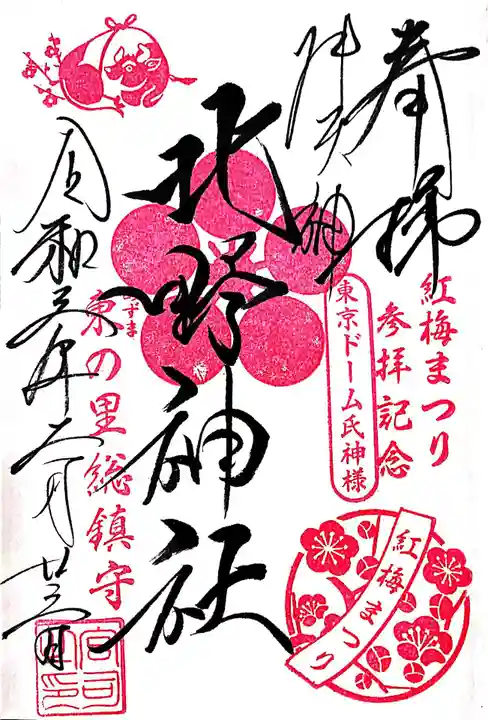 奉拝
牛天神
北野神社
令和五年二月廿三日
紅梅まつり
参拝記念
東京ドーム氏神様
づま
東の里総鎮守
紅梅まつり